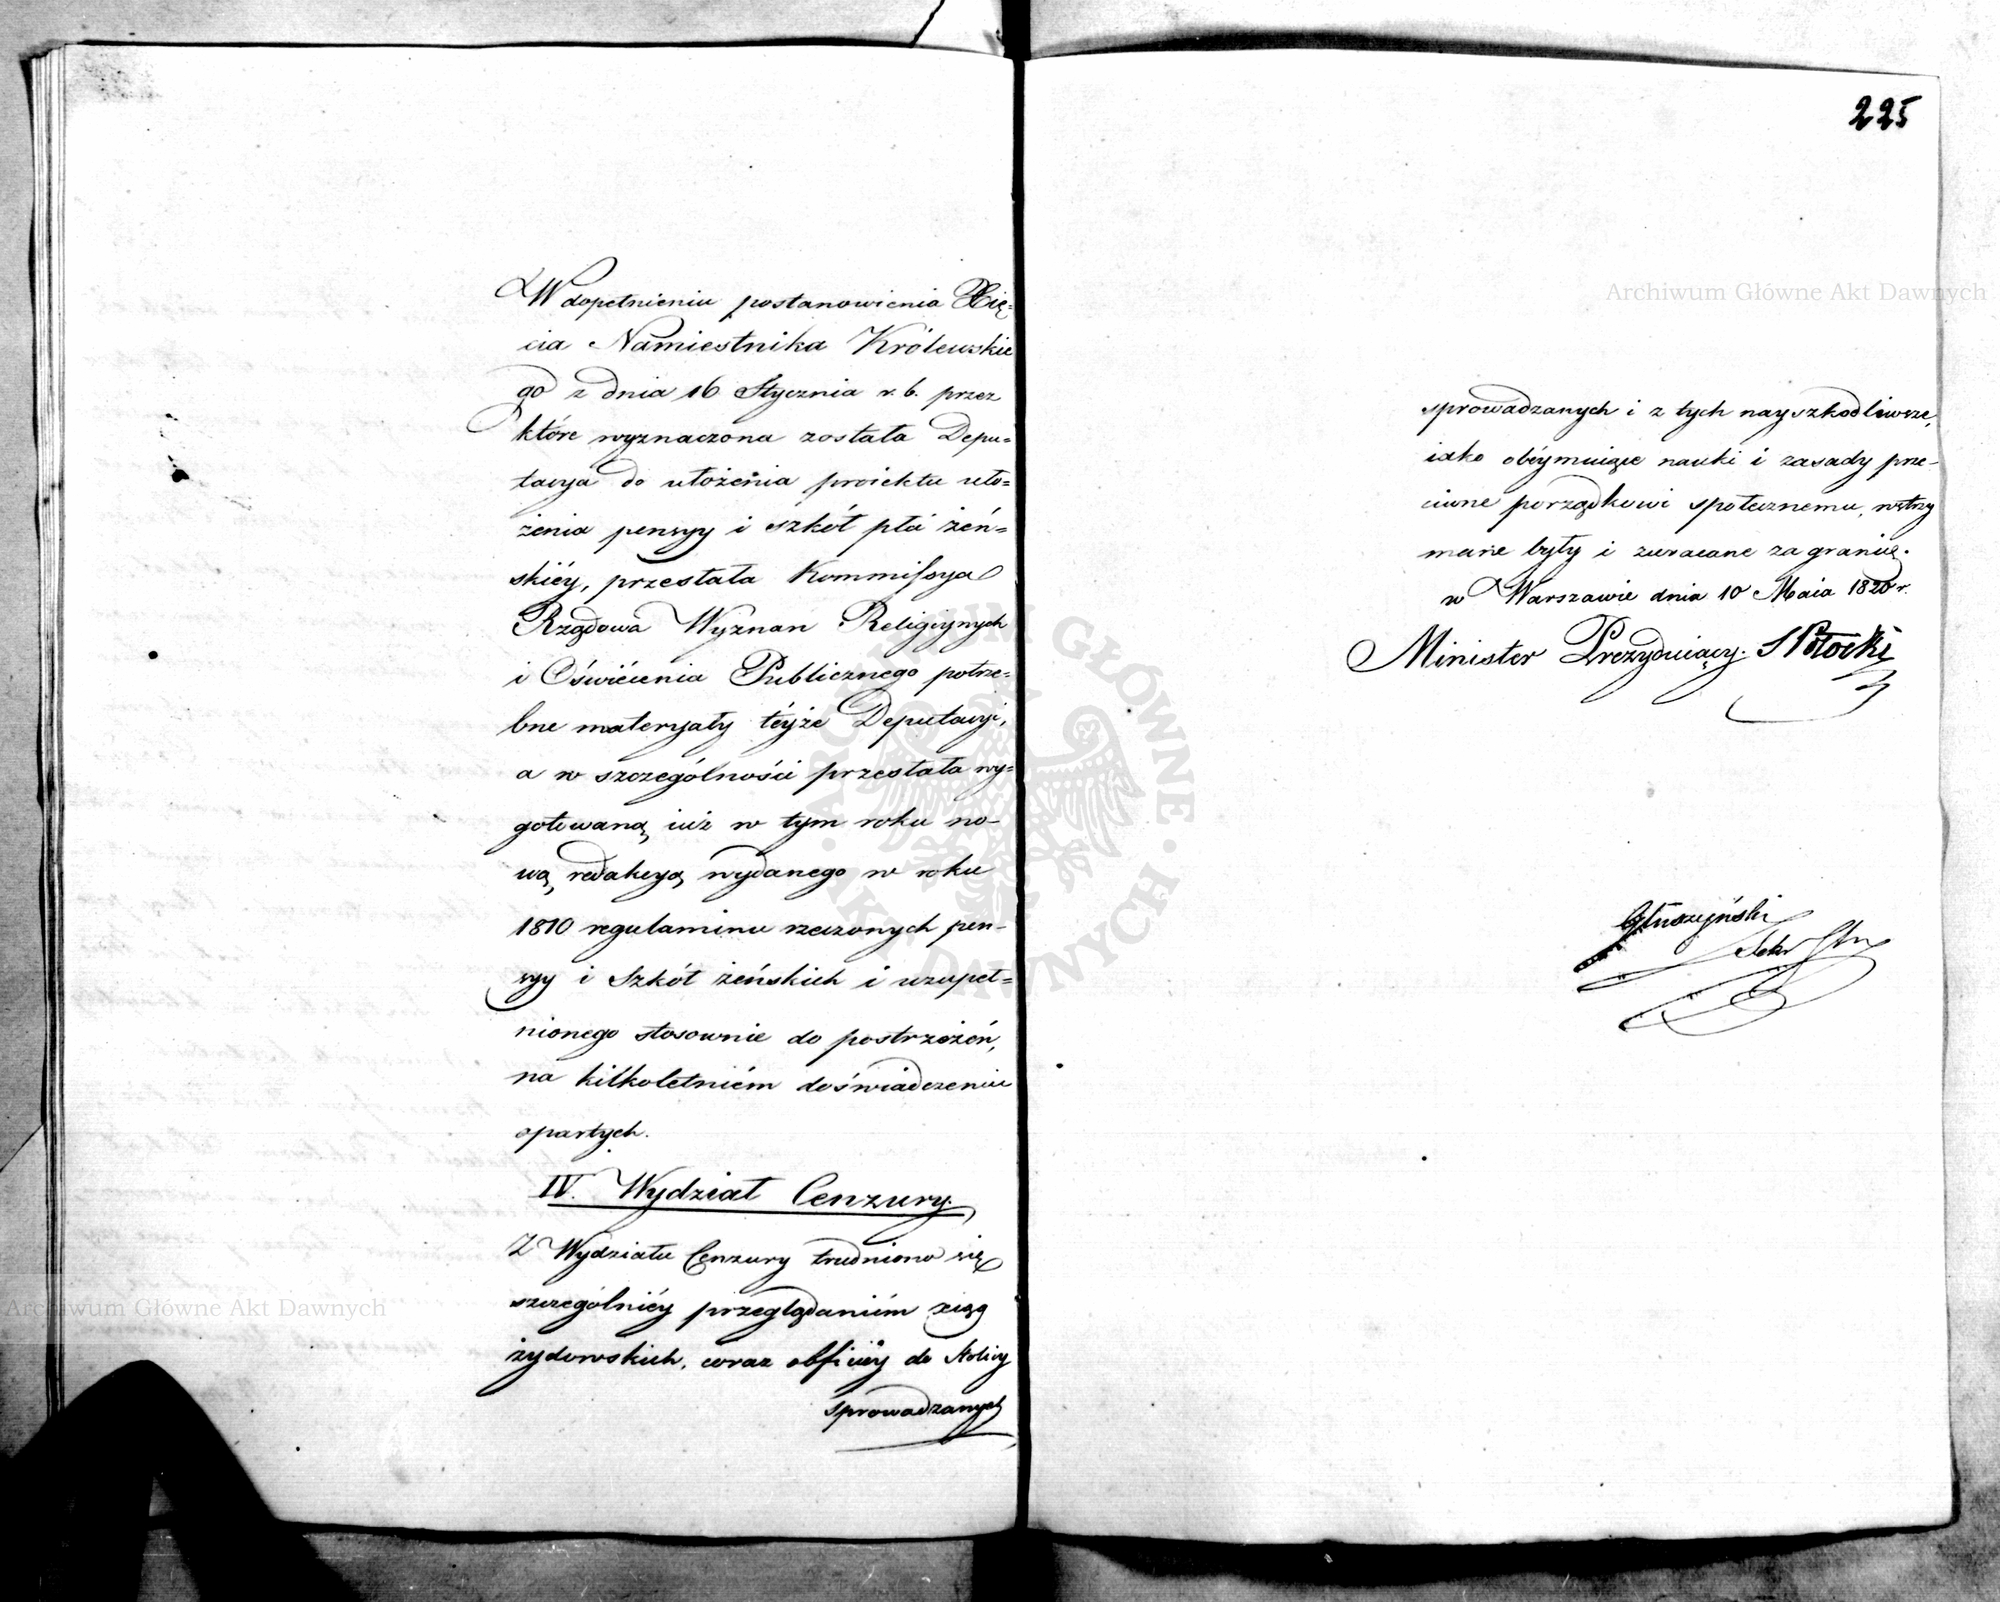 W dopełnieniu postanowienia Xię=
cia Namiestnika Królewskie
go z dnia 16 Stycznia r. b. przez
które wyznaczona została Depu=
tacya do ułożenia proiektu uło=
żenia pensyy i szkół płci żeń=
skiéy, przesłała Kommissya
Rządowa Wyznan Religiynych
i Oświécenia Publicznego potrze=
bne materyały téyże Deputacyi,
a w szczególności przesłała wy=
gotowaną iuż w tym roku no-
wą redakcyą wydanego w roku
1810 regulaminu rzeczonych pen-
syy i Szkół żeńskich i uzupeł=
nionego stosownie do postrzeżeń,
na kilkoletniém doświadczeniu
opartych.
IV. Wydział Cenzury.
Z Wydziału Cenzury trudniono się
szczególniéy przeglądaniém xiąg
żydowskich, coraz obficiéy do Stolicy
sprowadzanych
225
sprowadzanych i z tych nayszkodliwsze,
iako obéymuiące nauki i zasady prze-
ciwne porządkowi społecznemu, wstrzy
mane były i zwracane za granicę.
w Warszawie dnia 10 Maia 1820 r.
Minister Prezyduiący. S Potocki
Głuszyński
Sekr
Archiwum Główne Akt Dawnych
Archiwum Główne Akt Dawnych
ARCHIWUM GŁÓWNE · AKT DAWNYCH ·